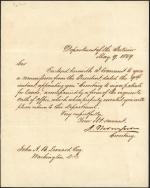 Department of the Interior
May 9, 1859
Sir
Enclosed herewith I transmit to you
a commission from the President dated the
instant appointing you Secretary to sign patents
for Lands, accompanied by a form of the requisite
Oath of office, which when properly executed you will
please return to this Department.
Very respectfully
Your
J. Thompson
Secretary
John A. B. Leonard Esq
Washington D.C.